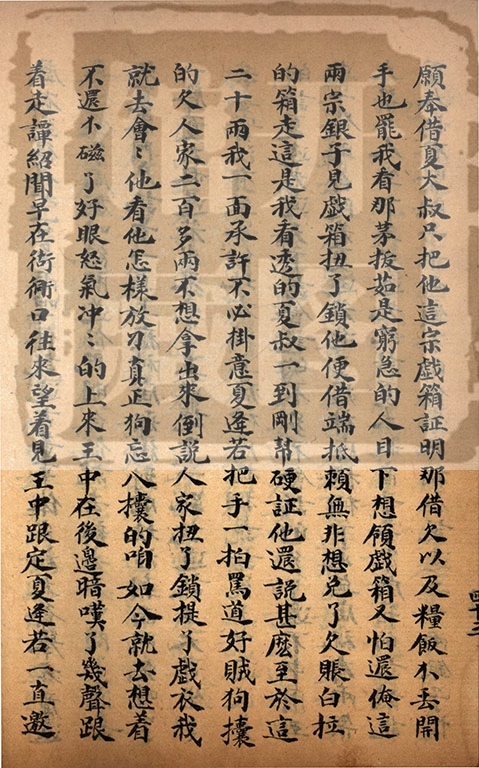 願奉借夏大叔只把他這宗戲箱証明那借欠以及糧飯不丢開
手也罷我看那茅拔茹是窮急的人目下想領戲箱又怕還俺這
兩宗銀子見戲箱扭了鎖他便借端抵賴無非想兑了欠賬白拉
的箱走這是我看透的夏叔一到剛幇硬証他還說甚麽至於這
二十兩我一面承許不必掛意夏逢若把手一拍罵道好賊狗攮
的欠人家二百多兩不想拿出來倒說人家扭了鎖提了戲衣我
就去會〻他看他怎樣放刁真正狗忘八攮的咱如今就去想着
不還不磁了好眼怒氣冲〻的上來王中在後邊暗嘆了幾聲跟
着走譚紹聞早在衚衕口往來望着見王中跟定夏逢若一直邀
四十三